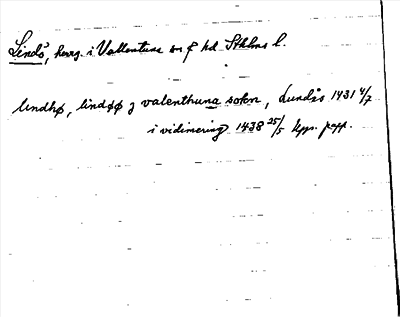 Lindö, herrg. i Vallentuna sn o hd Sthlms l.
lindhø, lindøø j valenthuna sokn, Lundås 1431 4/7
i vidimering 1438 25/5 Upps. papp.